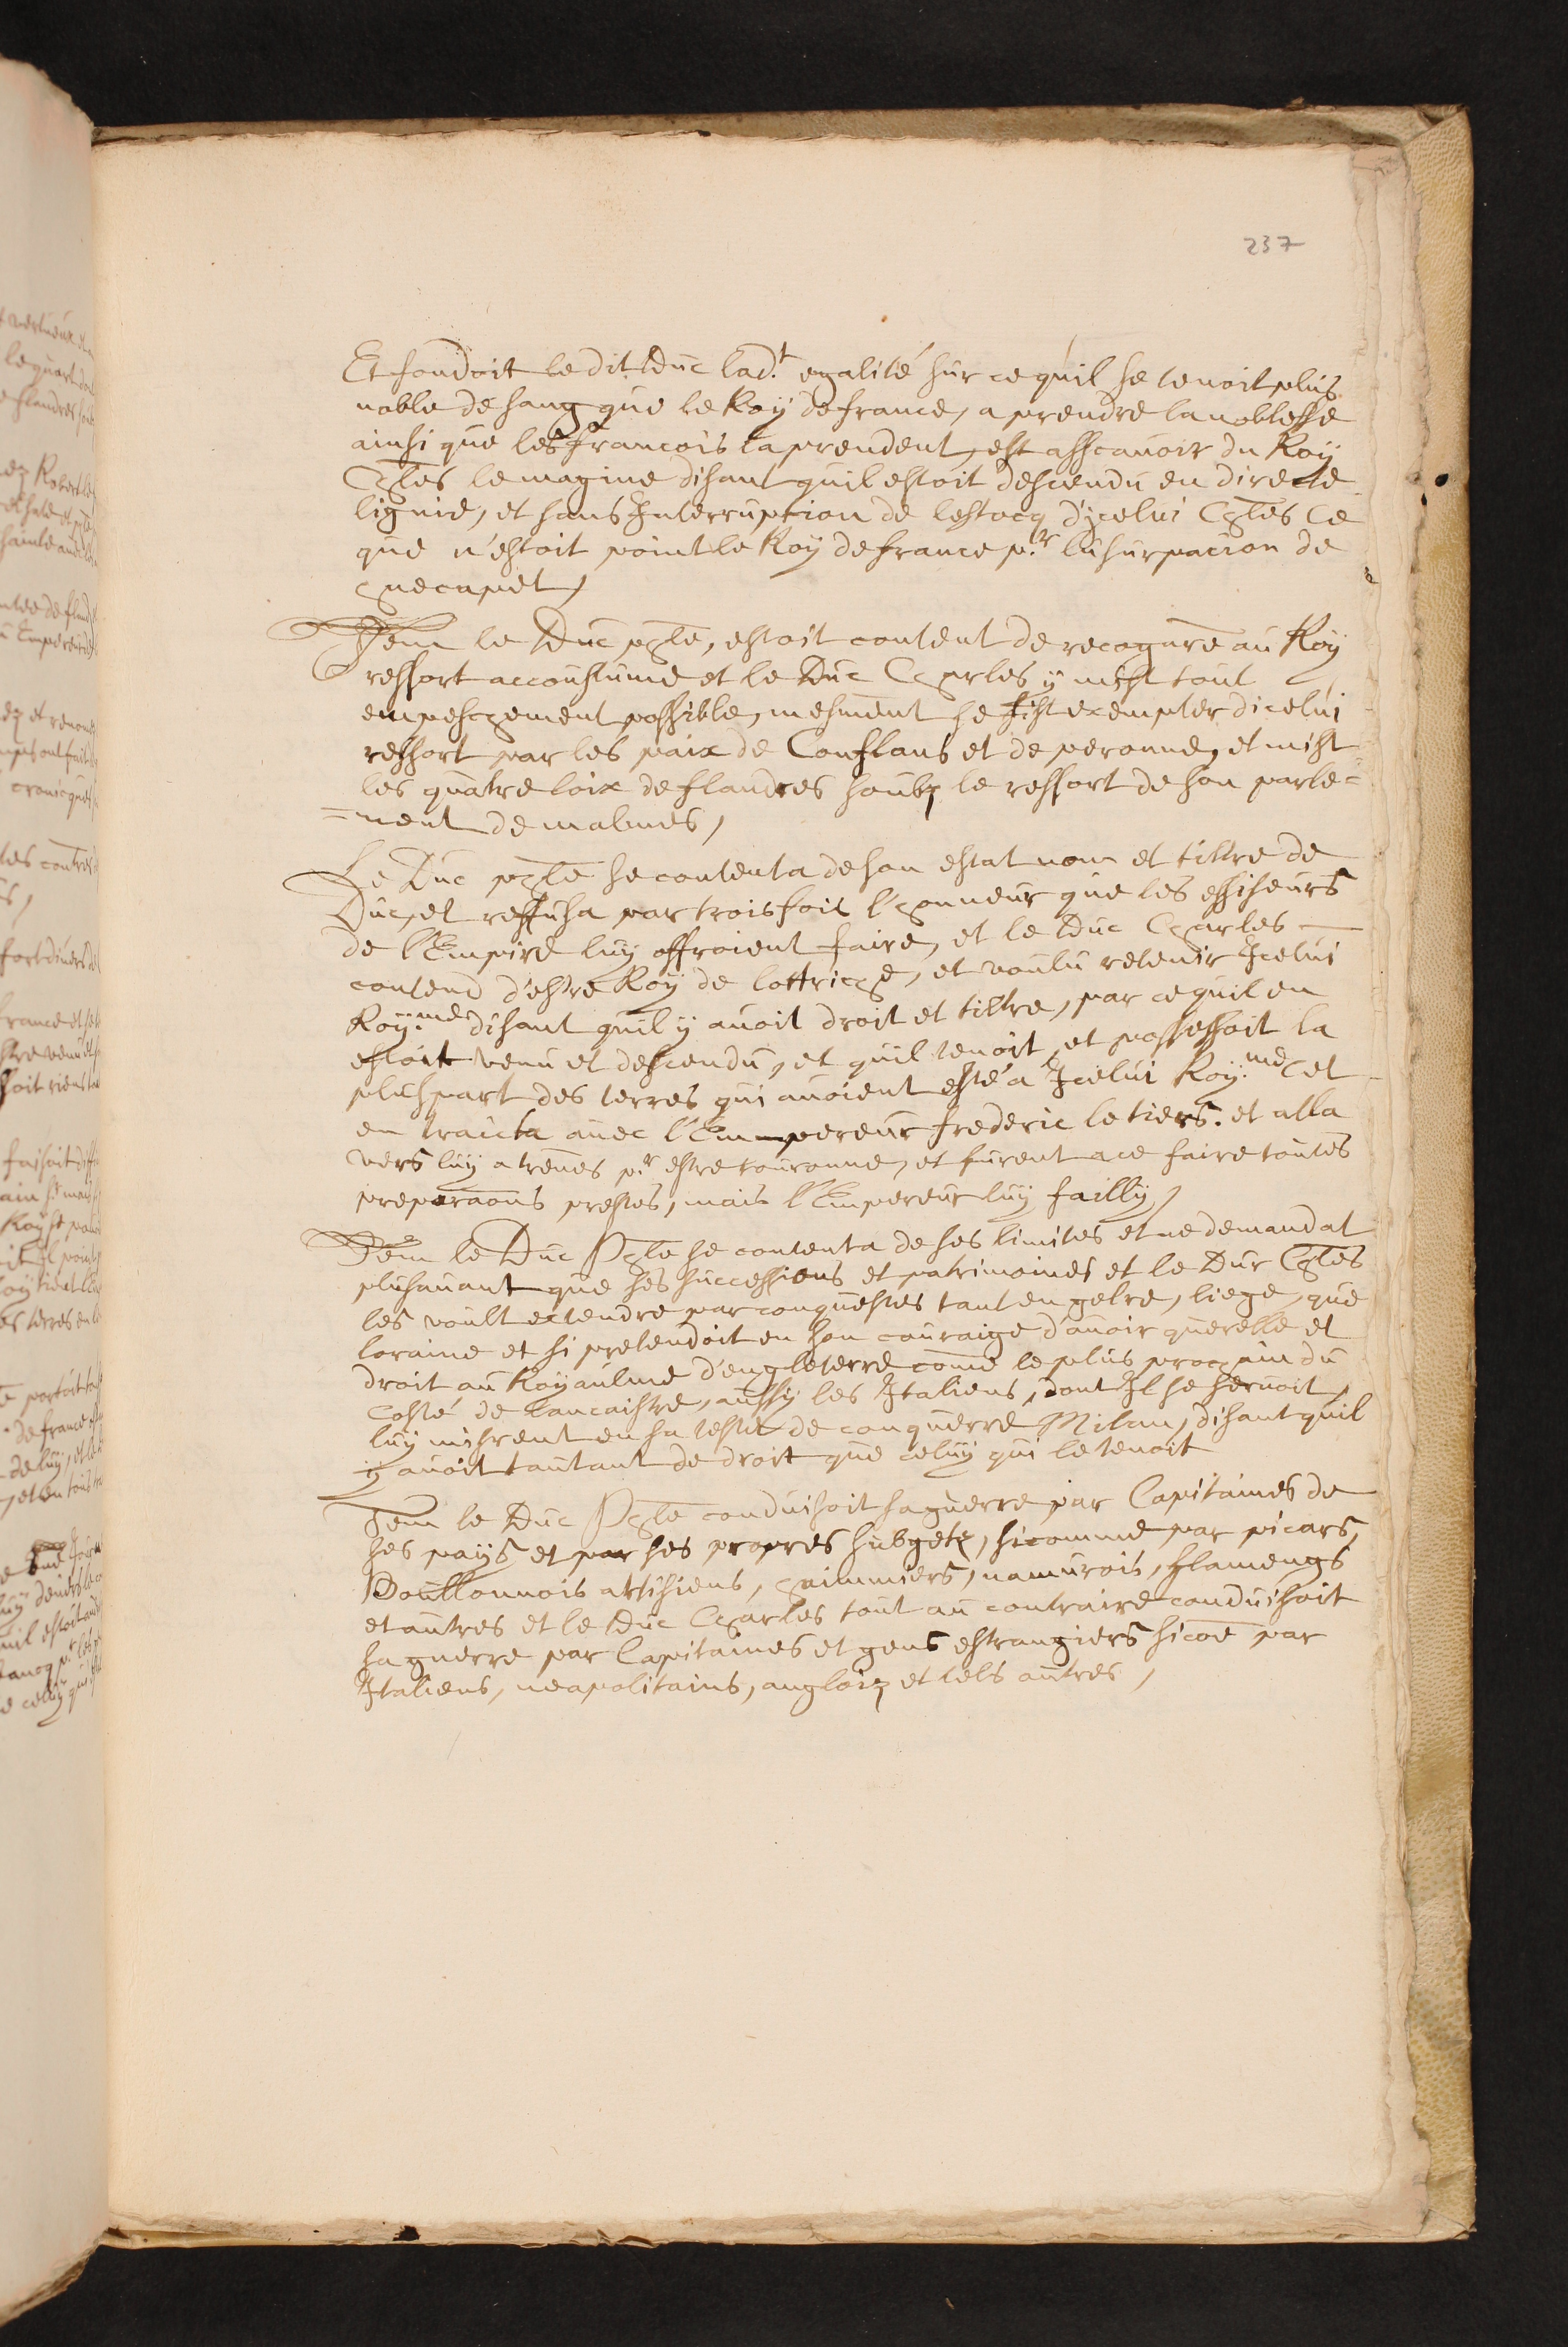 237
Et fondoit le dit Duc lad.t egalité sur ce quil se tenoit plus
noble de sang que le Roy de france, a prendre la noblesse
ainsi que les francois la prendent, est asscauoir du Roy
Chles le magine disant quil estoit descendu en directe
lignie, et sans Interruption de lestocq d'jcelui Chles Ce
que n'estoit point le Roy de france p.r lusurpacion de
huecapet,
Item le Duc phle, estoit content de recognre au Roy
ressort accoustume et le Duc Charles y mist tout
empeschement possible, mesment se fist exempter dicelui
ressort par les paix de Conflans et de peronne, et mist
les quatre loix de flandres soubz le ressort de son parle=
=ment de malines,
Le Duc phle se contenta de son estat nom et tiltre de
Duc, et reffusa par trois fois l'honneur que les essiseurs
de l'Empire luy offroient faire, et le Duc Charles
contend d'estre Roy de lottriche, et voulu retenir Icelui
Roy.me disant quil y auoit droit et tiltre, par ce quil en
estoit venu et descendu, et quil tenoit et possessoit la
pluspart des terres qui auoient esté a Icelui Roy.me et
en traicta auec l'Empereur frederic le tiers. et alla
vers luy a treues p.r estre couronne, et furent a ce faire toutes
preparaons prestes, mais l'Empereur luy failly,
Item le Duc Phle se contenta de ses limites et ne demandat
plusauant que ses successions et patrimoines et le Duc Chles
les voult extendre par conquestes tant en gelre, liege, que
loraine et si pretendoit en son couraige d'auoir querelle et
droit au Royaulme d'engleterre come le plus prochain du
costé de Lancaistre, aussy les Italiens, dont Il se seruoit,
luy misrent en sa teste de conquerre Milan, disant quil
y auoit tautant de droit que celuy qui le tenoit
Item le Duc Phle conduisoit sa guerre par Capitaines de
ses pays et par ses propres subgetz, sicomme par picars,
Boullonnois artisiens, hainnuiers, namurois, flamengs
et autres et le Duc Charles tout au contraire conduisoit
sa guerre par Capitaines et gens estrangiers sicoe par
Italiens, neapolitains, angloiz et tels autres,